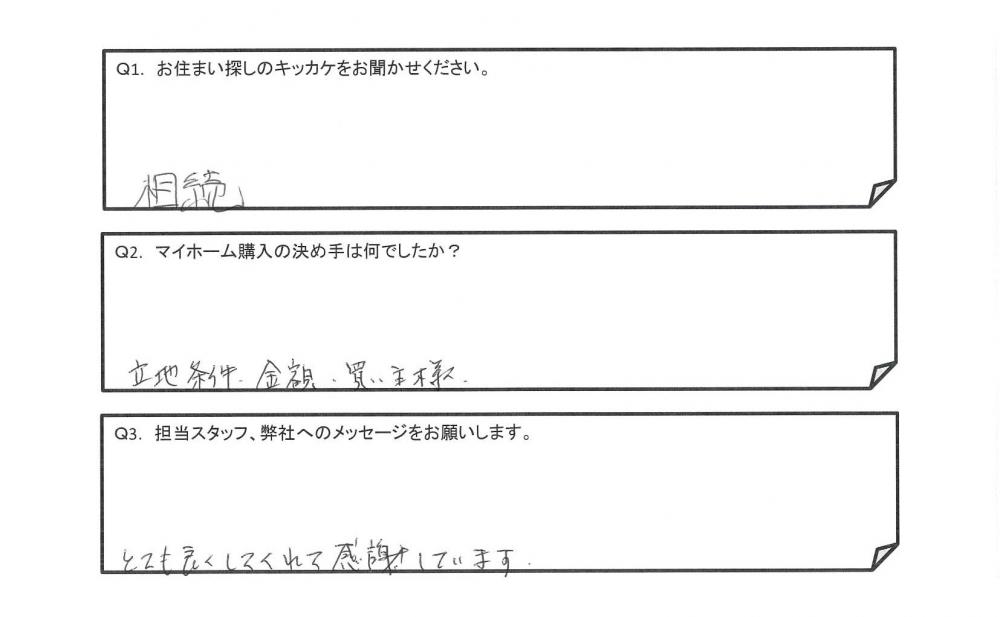 Q1. お住まい探しのキッカケをお聞かせください。
相続
Q2. マイホーム購入の決め手は何でしたか？
立地条件、金額、買い主様.
Q3. 担当スタッフ、弊社へのメッセージをお願いします。
とても良くしてくれて感謝しています.